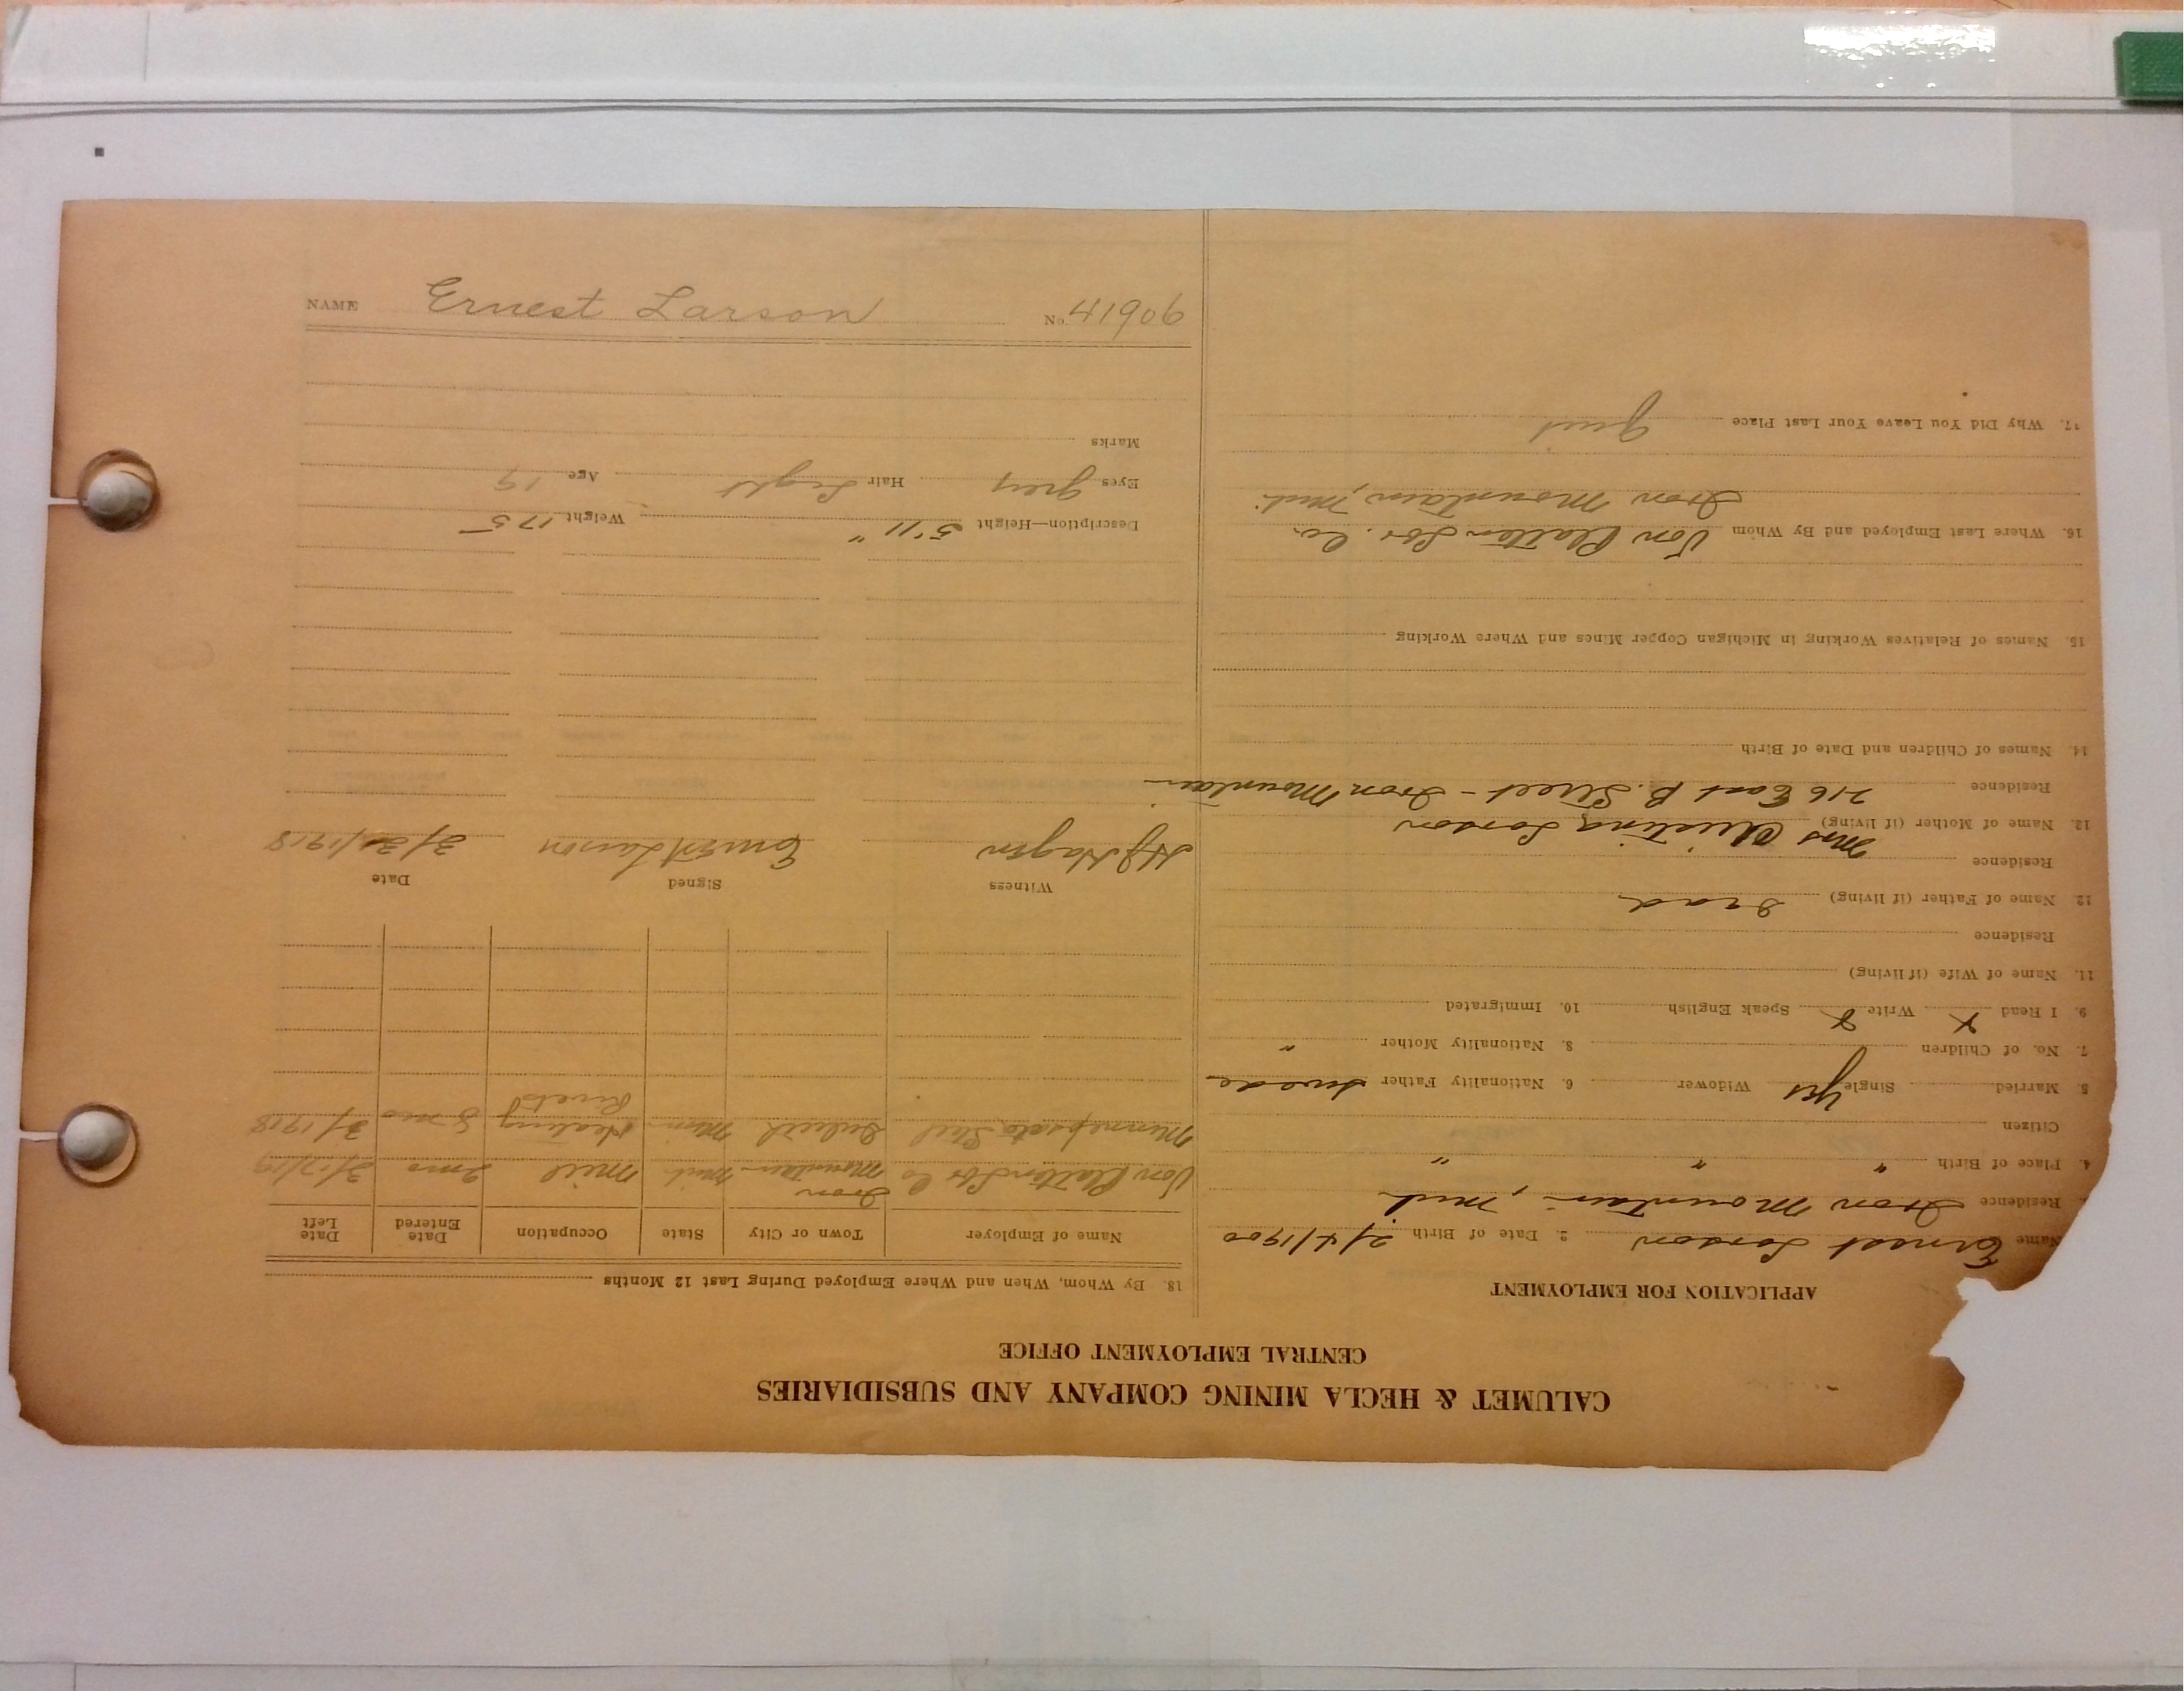 CALUMET & HECLA MINING COMPANY AND SUBSIDIARIES
CENTRAL EMPLOYMENT OFFICE
APPLICATION FOR EMPLOYMENT
Name Ernest Larson 2. Date of Birth 2/4/1900
Residence Iron Mountain, Mich
4. Place of Birth " " "
Citizen
5. Married Single Yes Widower 6. Nationality Father Swede
7. No. of Children 8. Nationality Mother "
9. I Read X Write X Speak English 10. Immigrated
11. Name of Wife (if living)
Residence
12. Name of Father (if living) Dead
Residence
13. Name of Mother (if living) Mrs Christina Larson
Residence 716 East B. Street - Iron Mountain
14. Names of Children and Date of Birth
15. Names of Relatives Working in Michigan Copper Mines and Where Working
16. Where Last Employed and By Whom Von Platen Lbr. Co.
Iron Mountain, Mich.
17. Why Did You Leave Your Last Place Quit
18. By Whom, When and Where Employed During Last 12 Months
Name of Employer Town or City State Occupation Date Entered Date Left
Von Platen Lbr Co Iron Mountain Mich Mill 2 mo 3/17/19
Minnesota Steel Duluth Minn Heating Rivets 8 mo
Witness Signed Date
Hagen Ernest Larson
Description—Height 5'11" Weight 175
Eyes Grey Hair Light Age 19
Marks
NAME Ernest Larson No. 41906